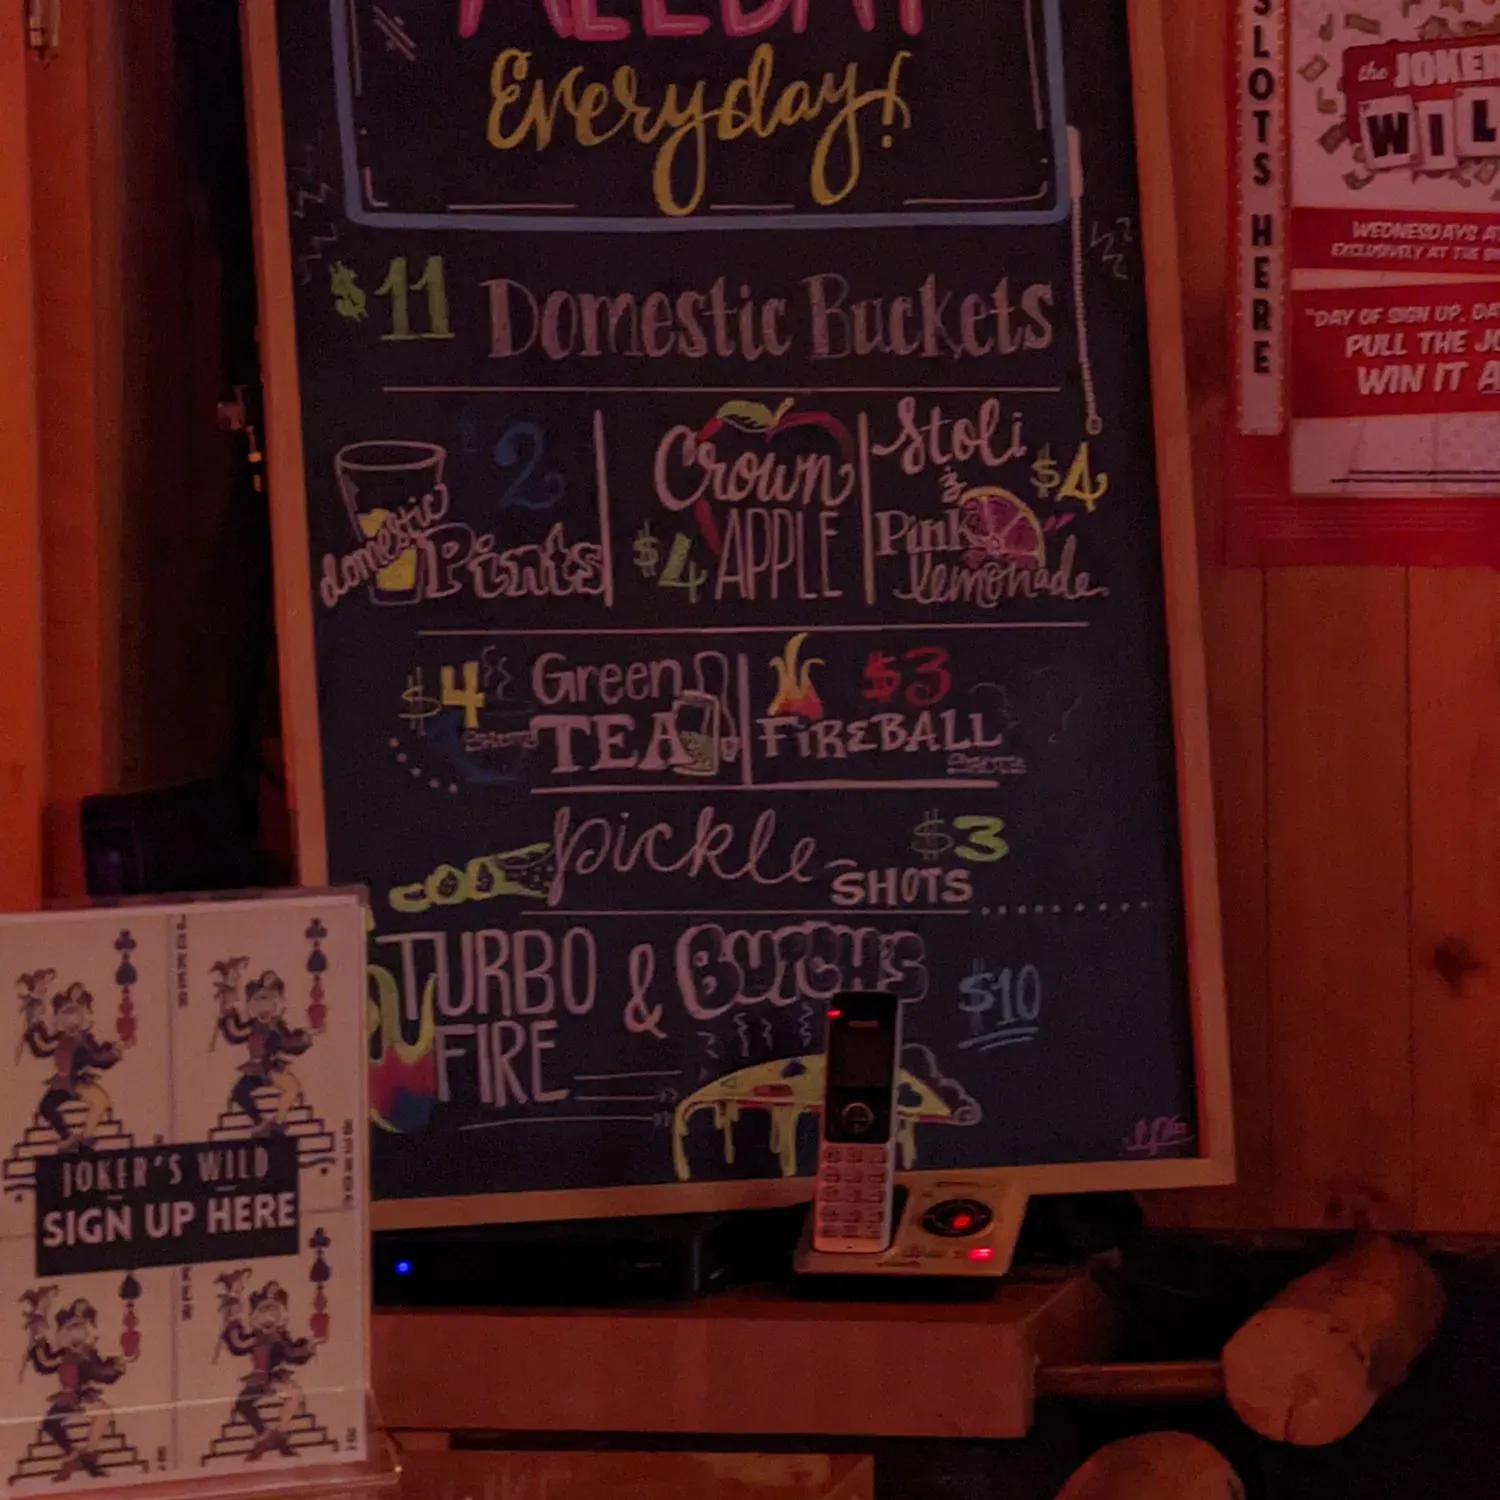 ALLDAY
Everyday!
$11 Domestic Buckets
2
domestic
Pints
Crown
$4 APPLE
Stoli
& $4
Pink
lemonade
$4 Green
TEA
$3
FIREBALL
pickle $3
SHOTS
TURBO & BUTCH'S $10
FIRE
JOKER'S WILD
SIGN UP HERE
SLOTS HERE
the JOKER
WIL
WEDNESDAYS AT
EXCLUSIVELY AT THE
"DAY OF SIGN UP, DA
PULL THE JO
WIN IT A